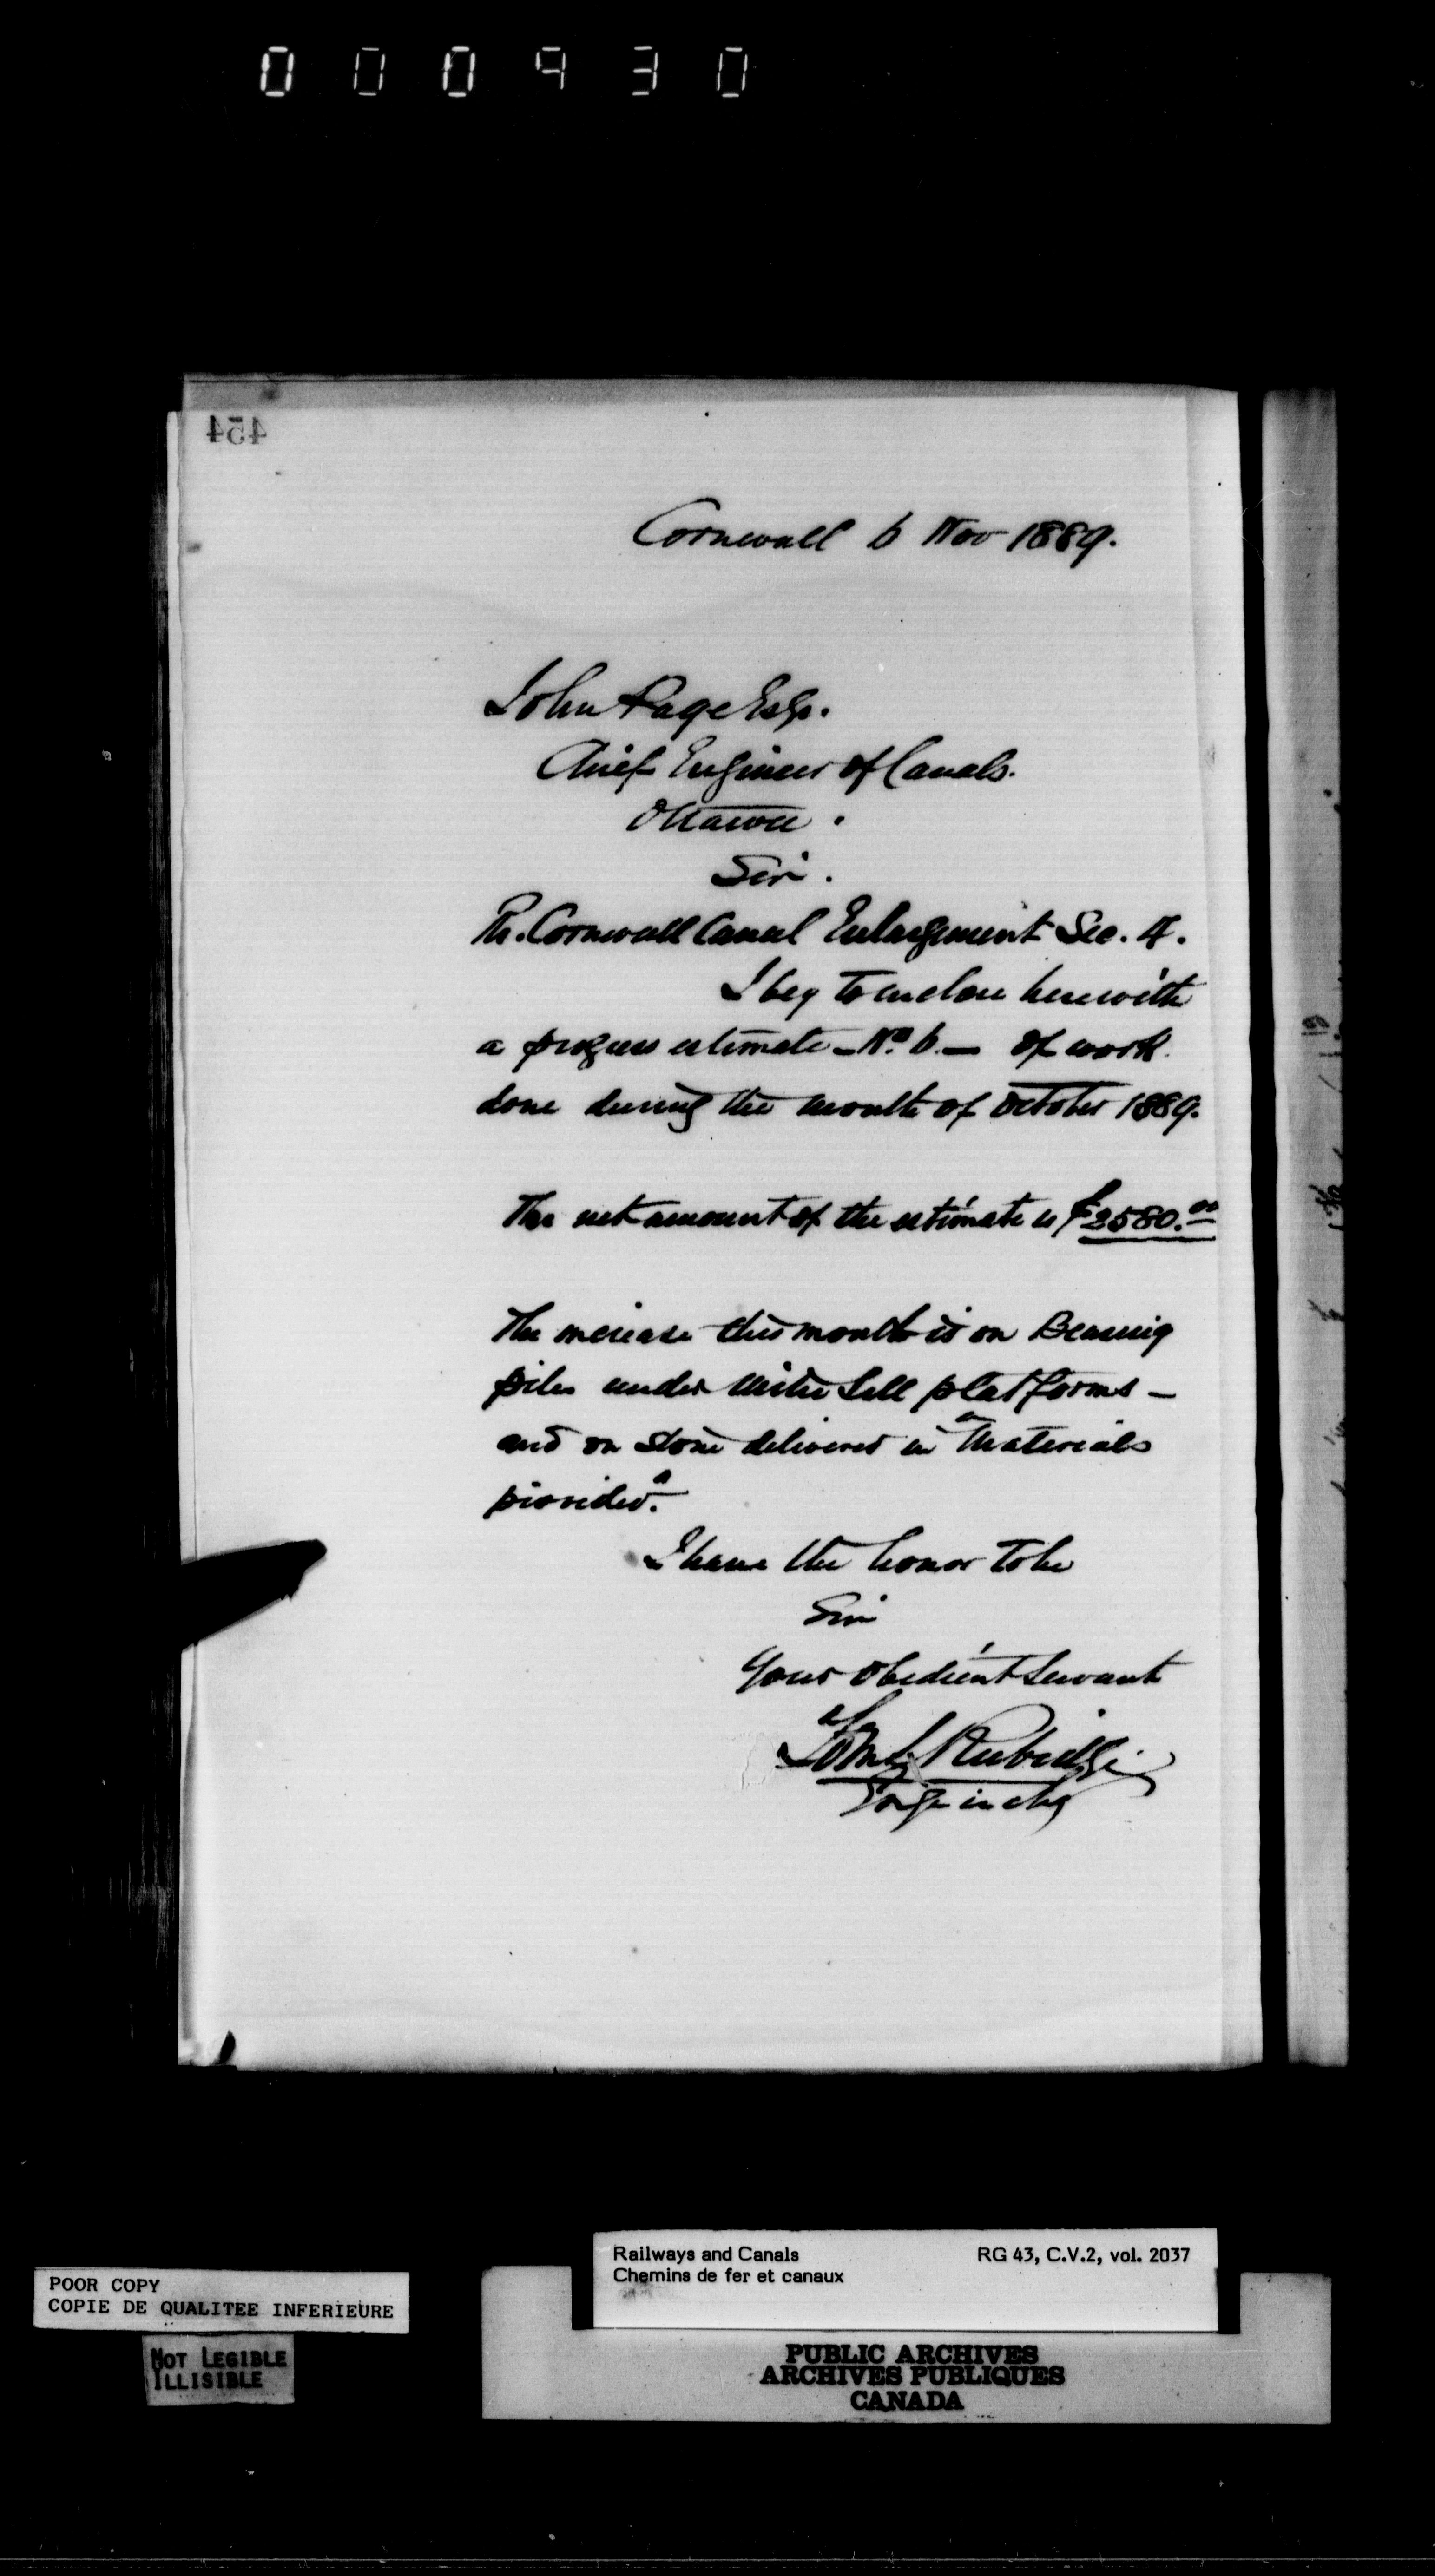 000930
454
Cornwall 6 Nov 1889.
John Page Esq.
Chief Engineer of Canals.
Ottawa.
Sir.
Re. Cornwall Canal Enlargement Sec. 4.
I beg to enclose herewith
a progress estimate - No. 6. - of work
done during the month of October 1889.
The net amount of the estimate is $2580.00
The increase this month is on Bearing
piles under Mitre Sill platforms -
and on stone delivered in "Materials
provided."
I have the honor to be
Sir
Your obedient Servant
Tom S Rubidge
Engr in chg
Railways and Canals
Chemins de fer et canaux
RG 43, C.V.2, vol. 2037
POOR COPY
COPIE DE QUALITEE INFERIEURE
NOT LEGIBLE
ILLISIBLE
PUBLIC ARCHIVES
ARCHIVES PUBLIQUES
CANADA